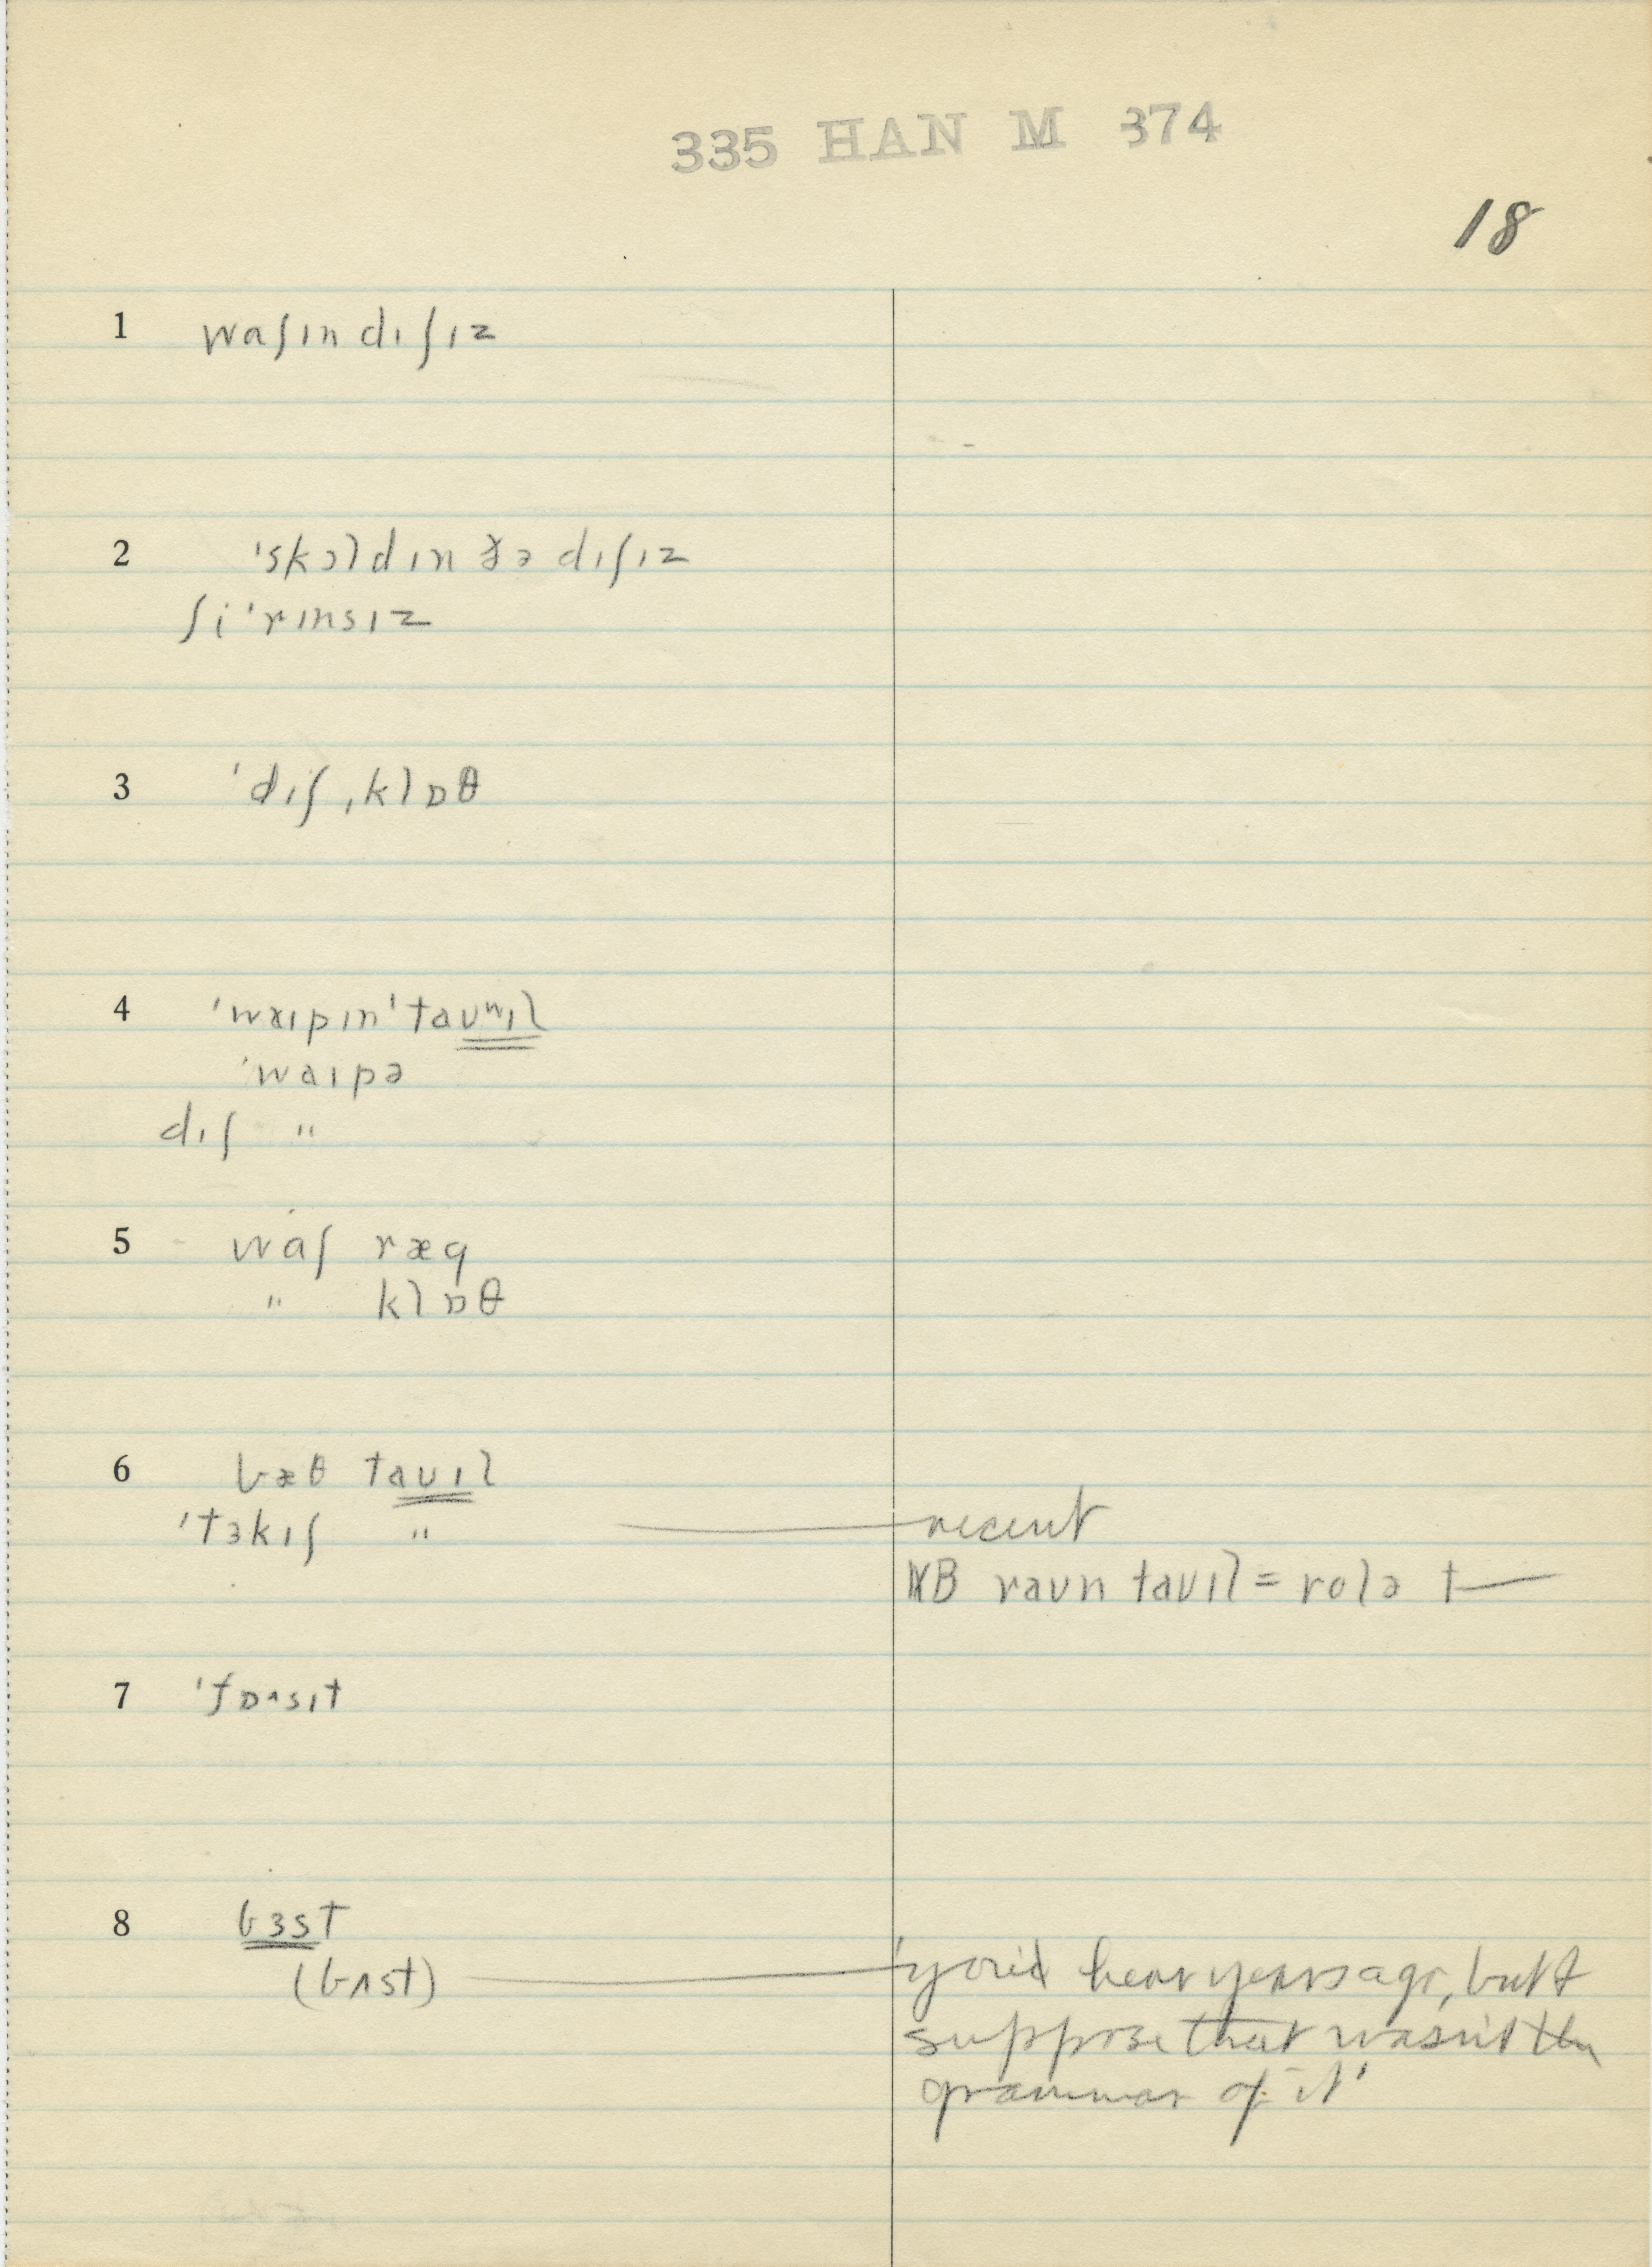 335 HAN M 374
18
1 waʃın dıʃız
2 'skɔldın ðə dıʃız
ʃi 'rınsız
3 'dıʃˌklɒθ
4 'waıpın 'taʊʷıl
'waıpə
dıʃ "
5 waʃ ræg
" klɒθ
6 bæθ taʊıl
'tɜkıʃ " recent
NB raʊn taʊıl = rolə t—
7 'fɒ˄sıt
8 bɜst
(bʌst) 'you'd hear years ago, but I
suppose that wasn't the
grammar of it'